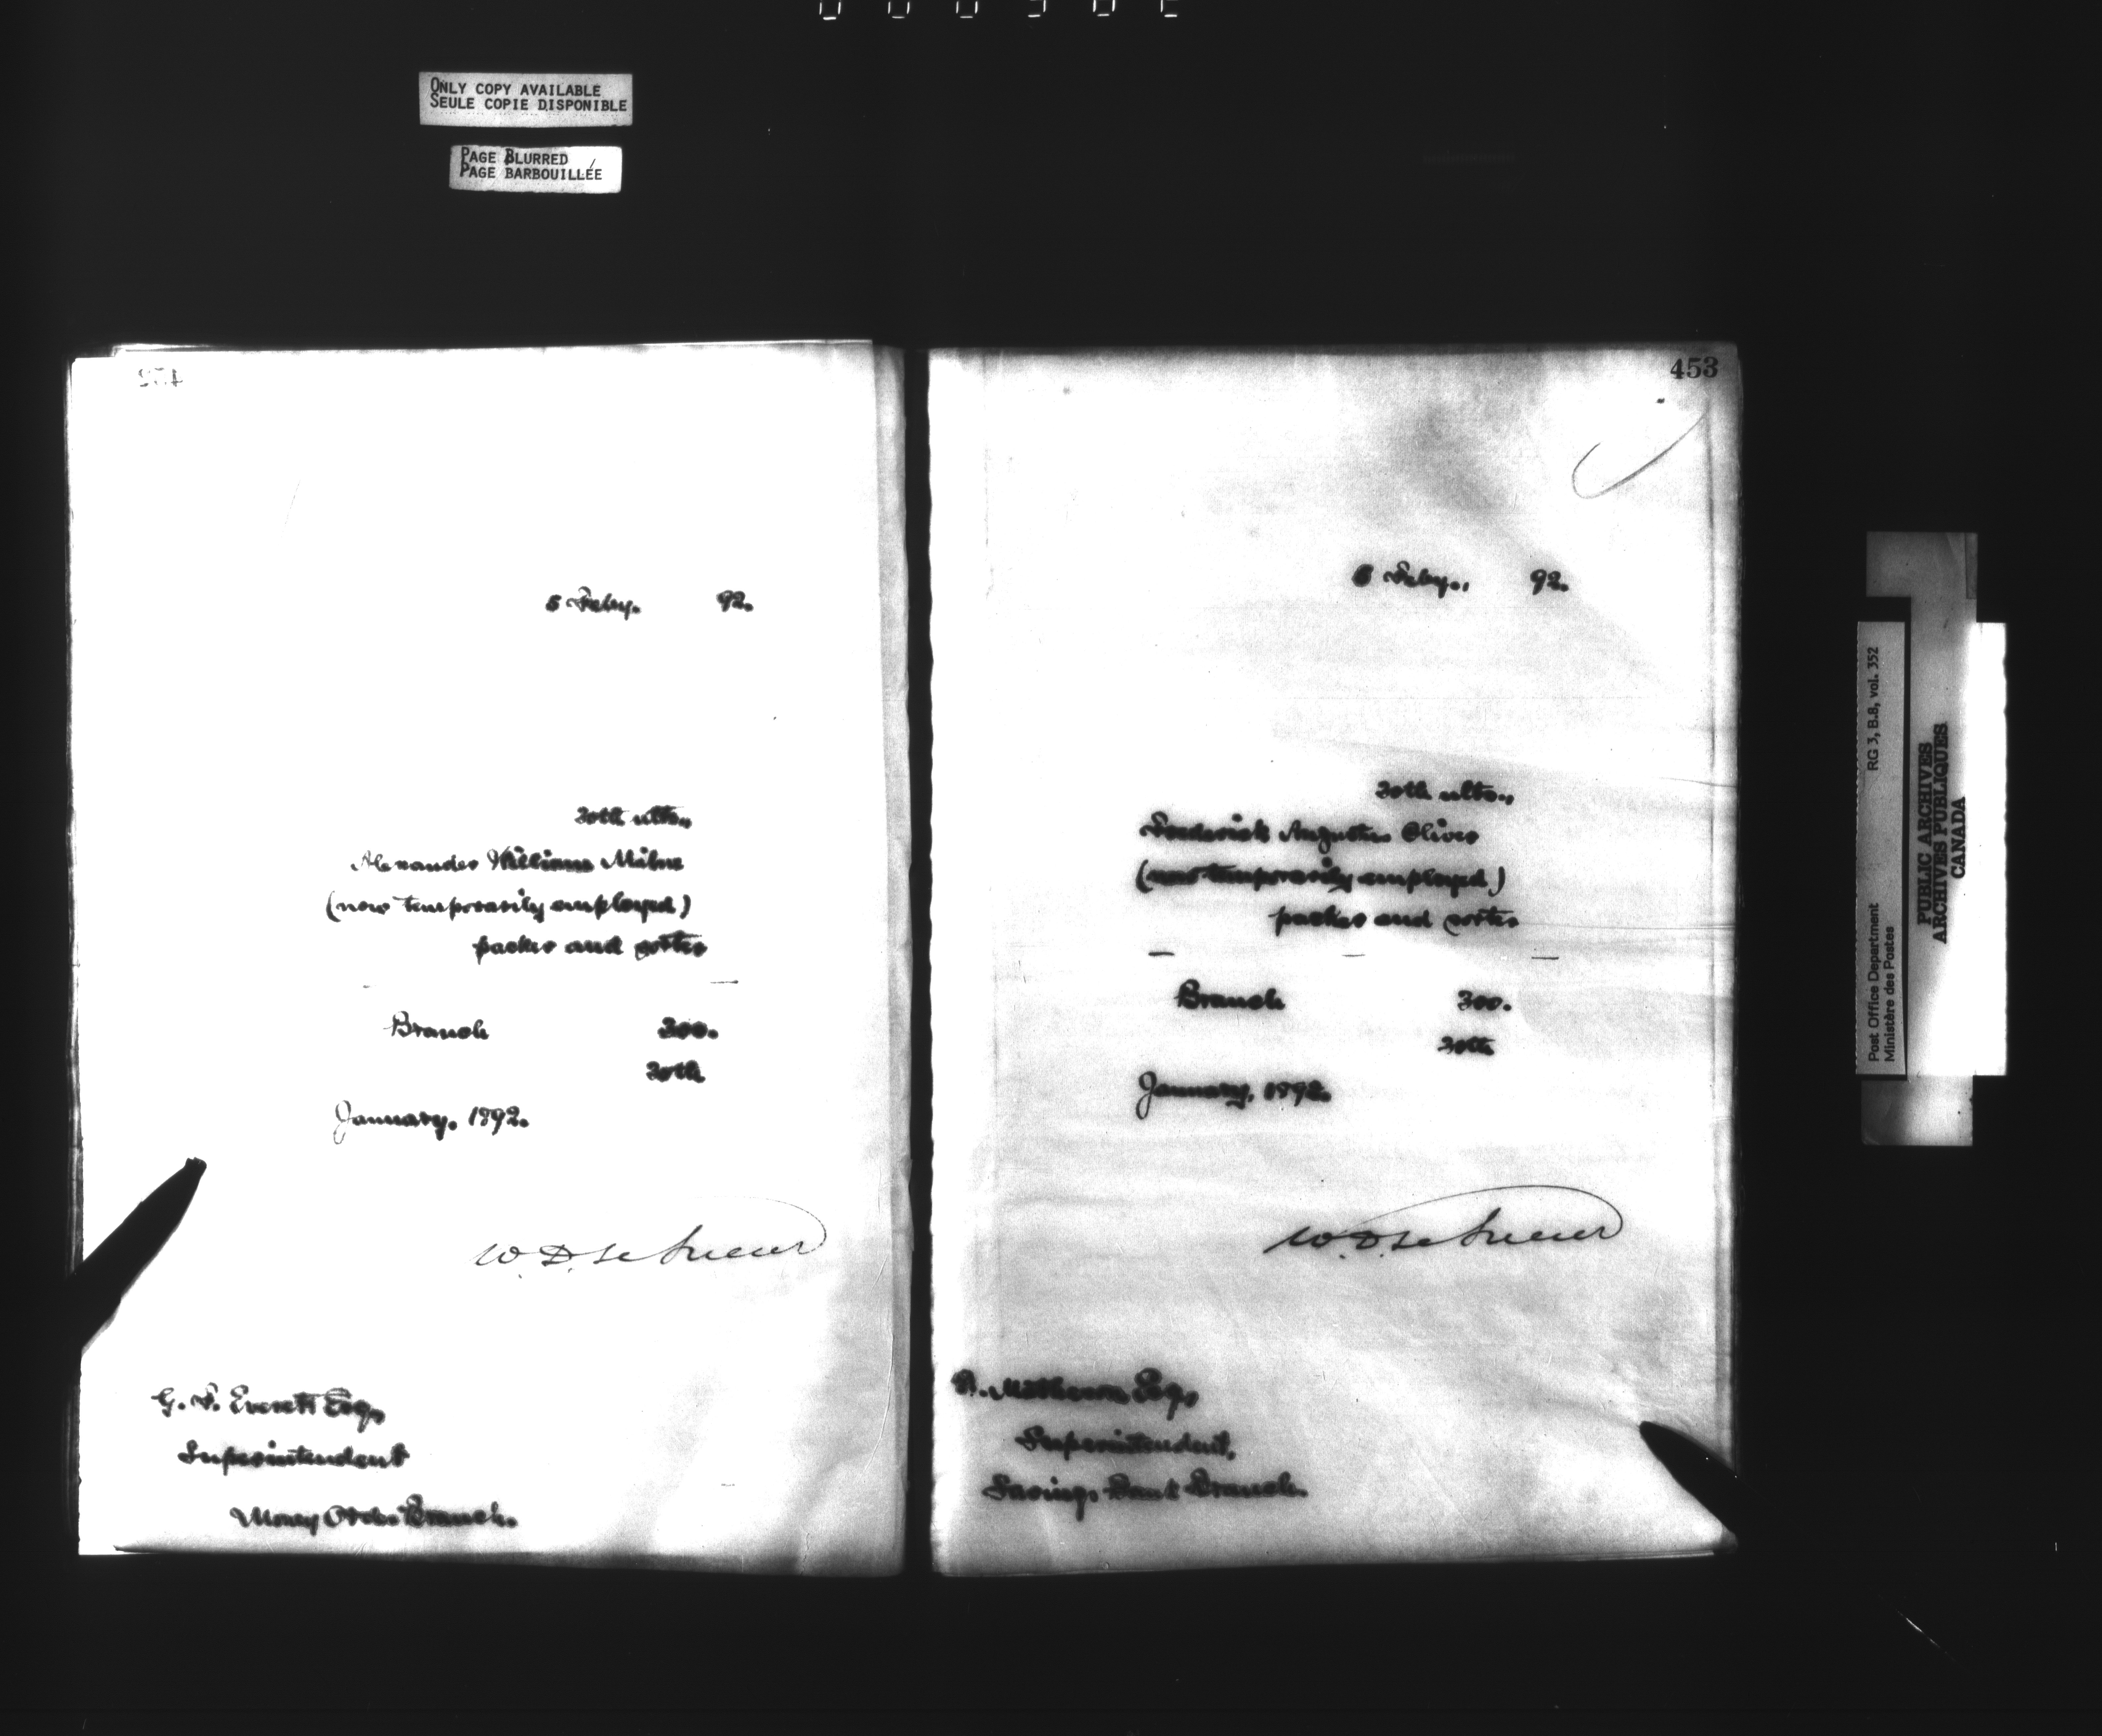 ONLY COPY AVAILABLE
SEULE COPIE DISPONIBLE
PAGE BLURRED
PAGE BARBOUILLÉE
452
5 Feby. 92.
30th ulto.,
Alexander William Milne
(now temporarily employed)
packer and sorter
Branch 300.
30th
January, 1892.
W. D. LeSueur
G. F. Everett Esq,
Superintendent
Money Order Branch.
453
5 Feby., 92.
30th ulto.,
Frederick Augustus Oliver
(now temporarily employed)
packer and sorter
Branch 300.
30th
January, 1892.
W. D. LeSueur
D. Matheson Esq,
Superintendent,
Savings Bank Branch.
Post Office Department RG 3, B.8, vol. 352
Ministère des Postes
PUBLIC ARCHIVES
ARCHIVES PUBLIQUES
CANADA